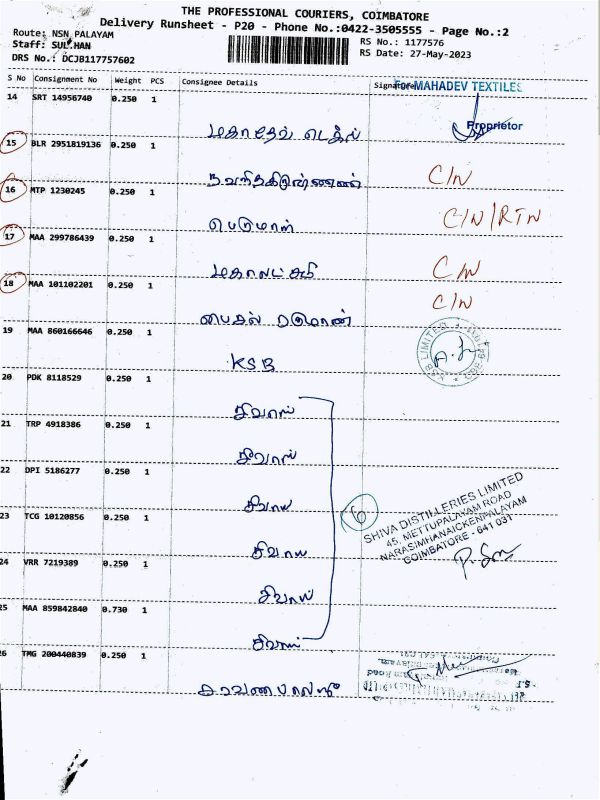 THE PROFESSIONAL COURIERS, COIMBATORE
Delivery Runsheet - P20 - Phone No.:0422-3505555 - Page No.:2
Route: NSN PALAYAM
Staff: SULTHAN
DRS No.: DCJB117757602
RS No.: 1177576
RS Date: 27-May-2023
S No Consignment No Weight PCS Consignee Details Signature
For MAHADEV TEXTILES
14 SRT 14956740 0.250 1
மகாதேவ் டெக்ஸ்
Proprietor
15 BLR 2951819136 0.250 1
C/N
16 MTP 1230245 0.250 1
பெருமாள்
C/N/RTN
17 MAA 299786439 0.250 1
மகாலட்சுமி
C/N
18 MAA 101102201 0.250 1
C/N
பைசல் ரகுமான்
19 MAA 860166646 0.250 1
KSB
KSB LIMITED
20 PDK 8118529 0.250 1
சிவாஸ்
21 TRP 4918386 0.250 1
சிவாஸ்
22 DPI 5186277 0.250 1
சிவாஸ்
6
SHIVA DISTILLERIES LIMITED
45, METTUPALAYAM ROAD
NARASIMHANAICKENPALAYAM
COIMBATORE - 641 031
23 TCG 10120856 0.250 1
சிவாஸ்
24 VRR 7219389 0.250 1
சிவாஸ்
25 MAA 859842840 0.730 1
சிவாஸ்
26 TMG 200440839 0.250 1